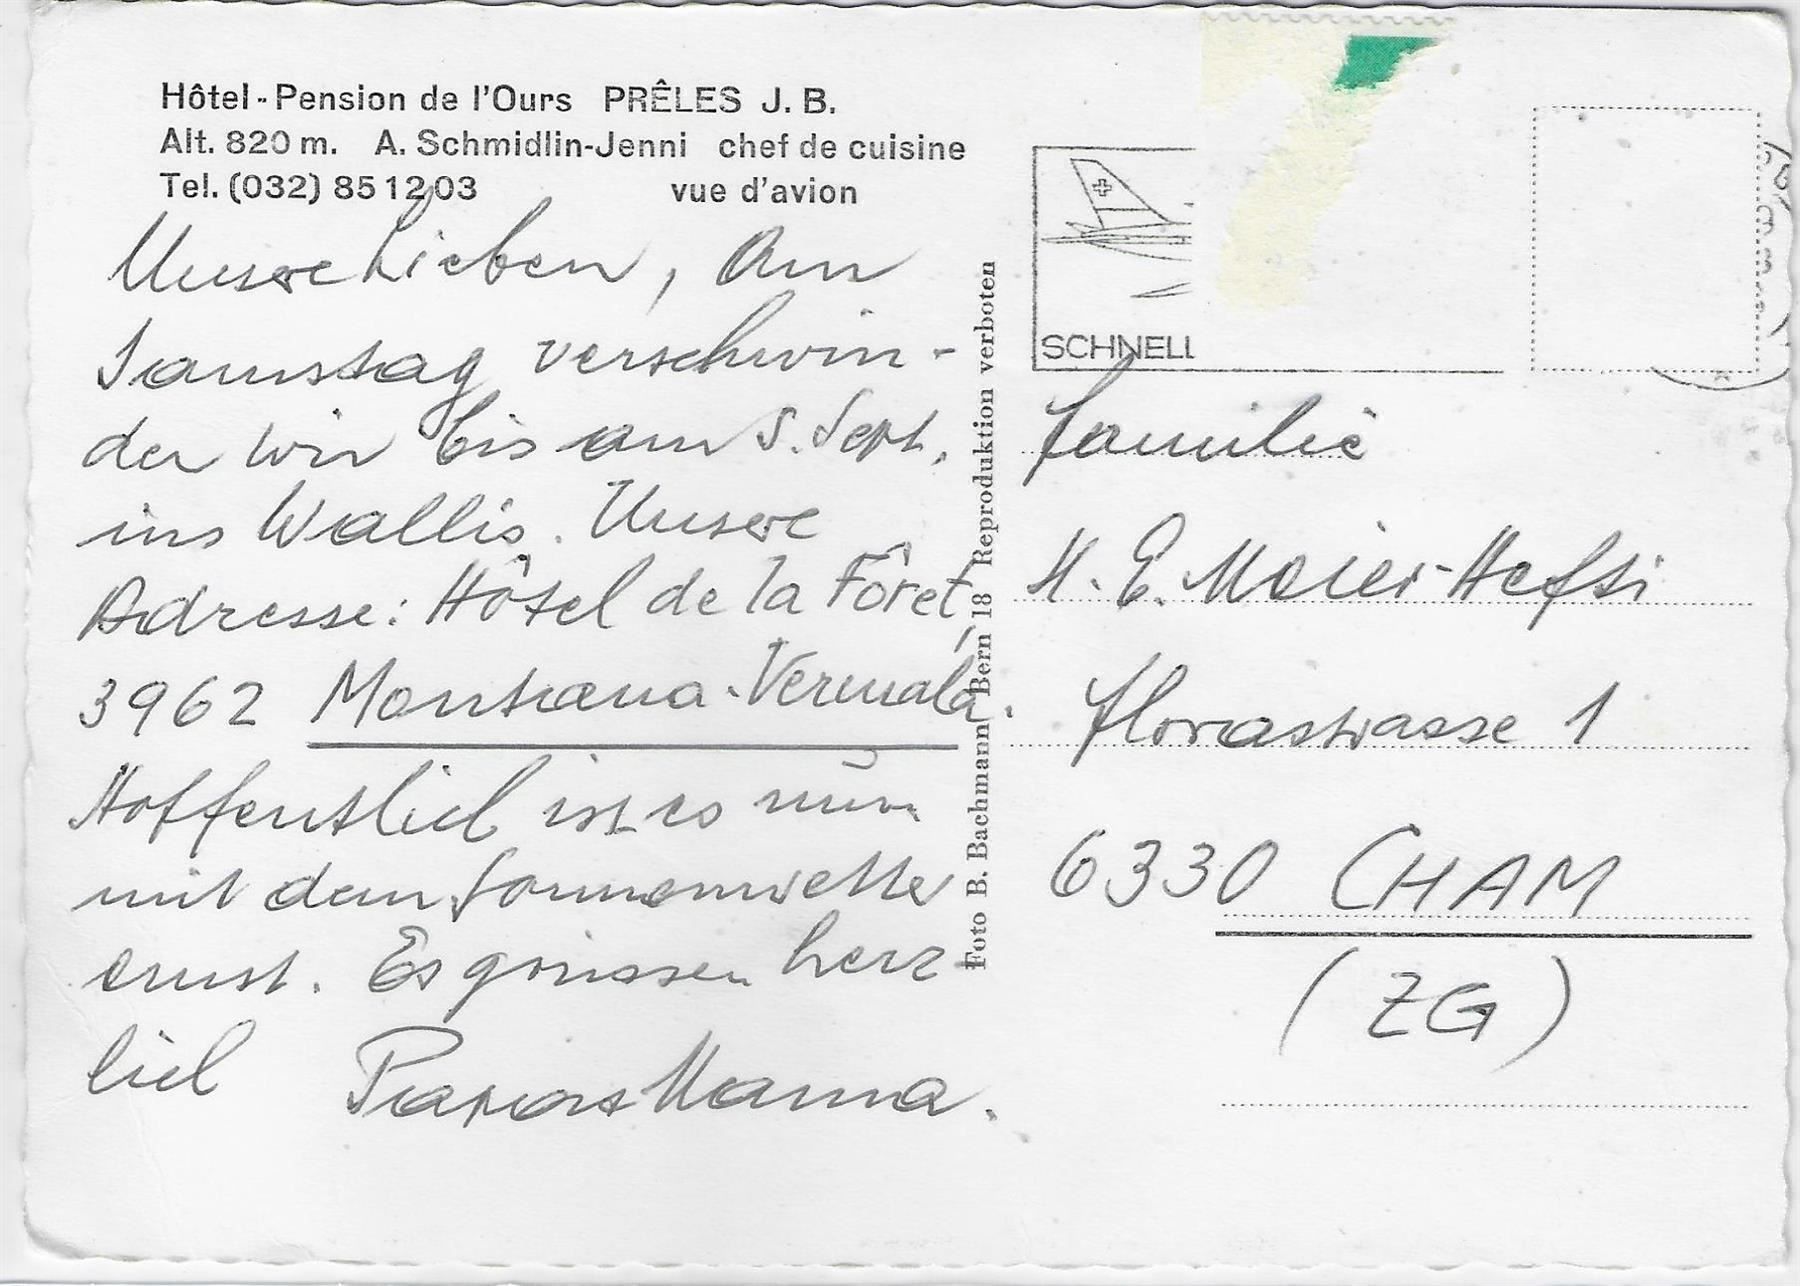 Hôtel-Pension de l'Ours PRÊLES J. B.
Alt. 820 m. A. Schmidlin-Jenni chef de cuisine
Tel. (032) 85 12 03 vue d'avion
Unsere Lieben, Am
Samstag verschwin-
den wir bis am 5. Sept.
ins Wallis. Unsere
Adresse: Hôtel de la Fôret,
3962 Montana-Vermala.
Hoffentlich ist es nun
mit dem Sonnenwetter
ernst. Es grüssen herz-
lich Papa + Mama.
Foto B. Bachmann Bern 18 Reproduktion verboten
SCHNELL
Familie
H. E. Meier-Hefti
Florastrasse 1
6330 CHAM
(ZG)